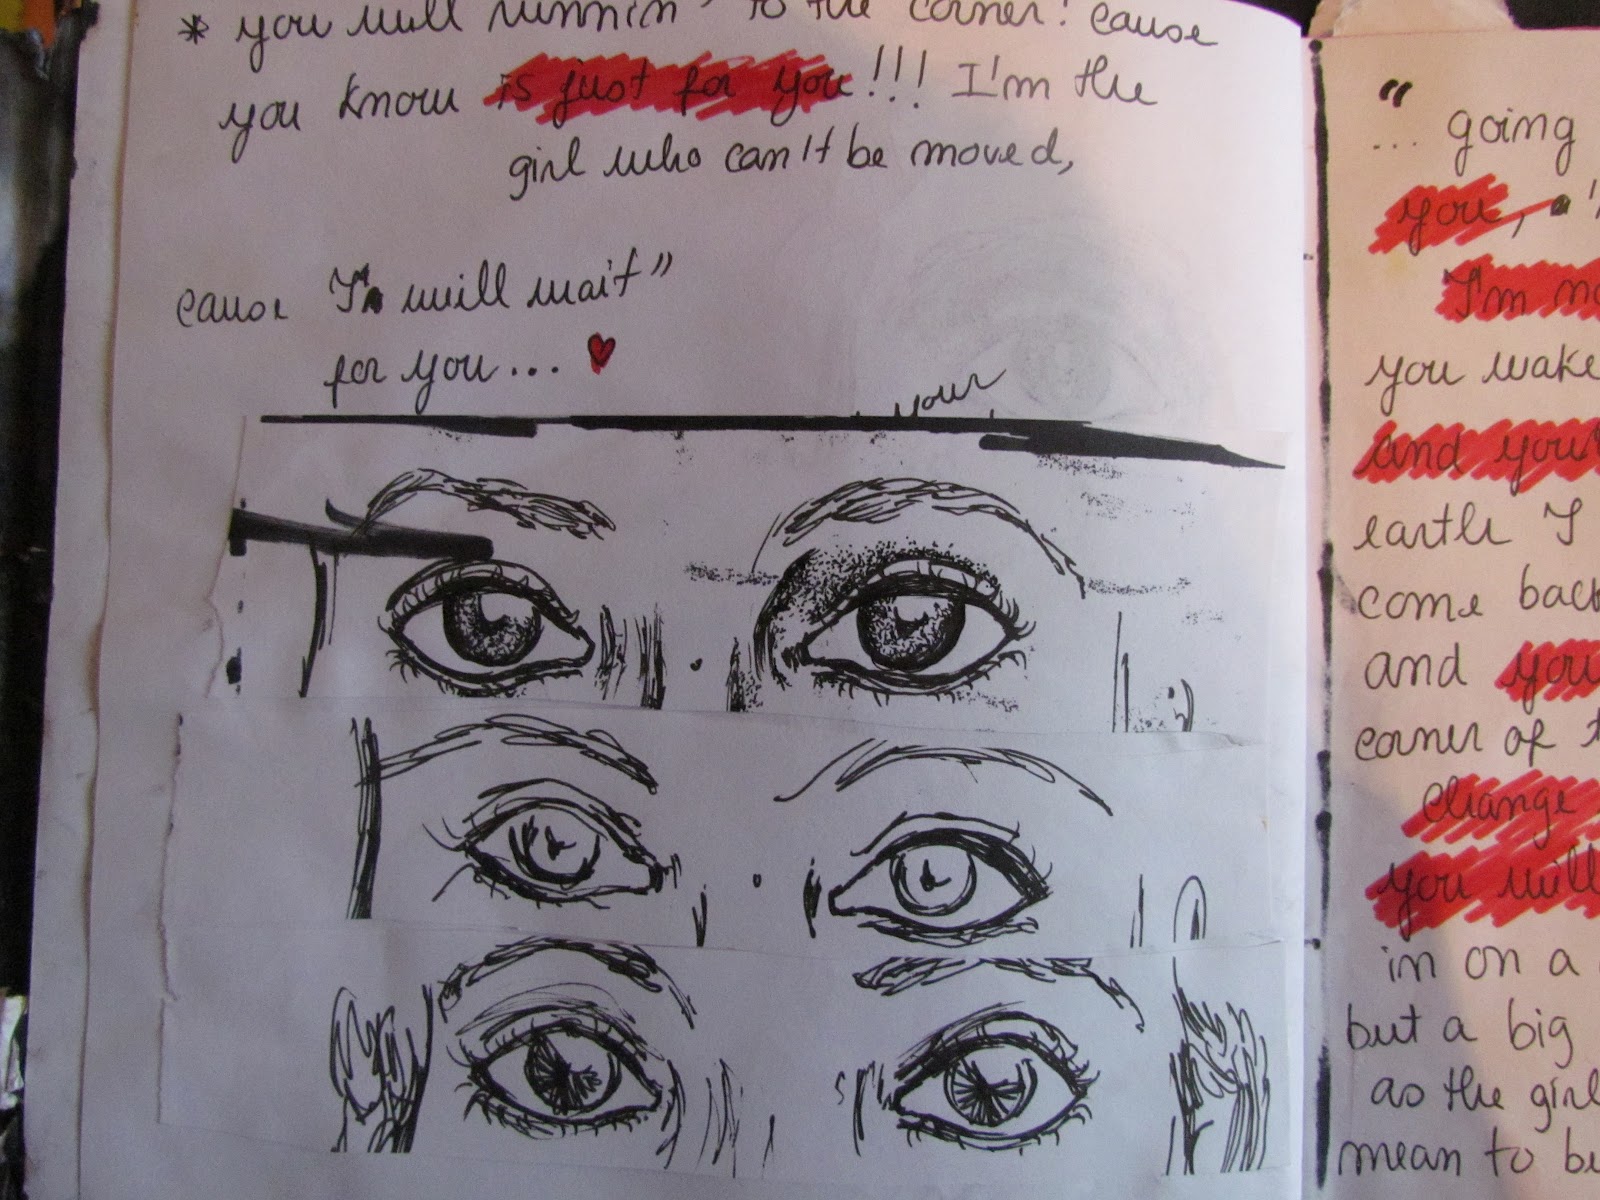 * you will runnin' to the corner! cause
you know is just for you!!! I'm the
girl who can't be moved,
cause I will wait"
for you...
your
"
... going
you,
I'm
you wake
and your
earth I
come back
and you
corner of
change
you will
in on a
but a big
as the girl
mean to be